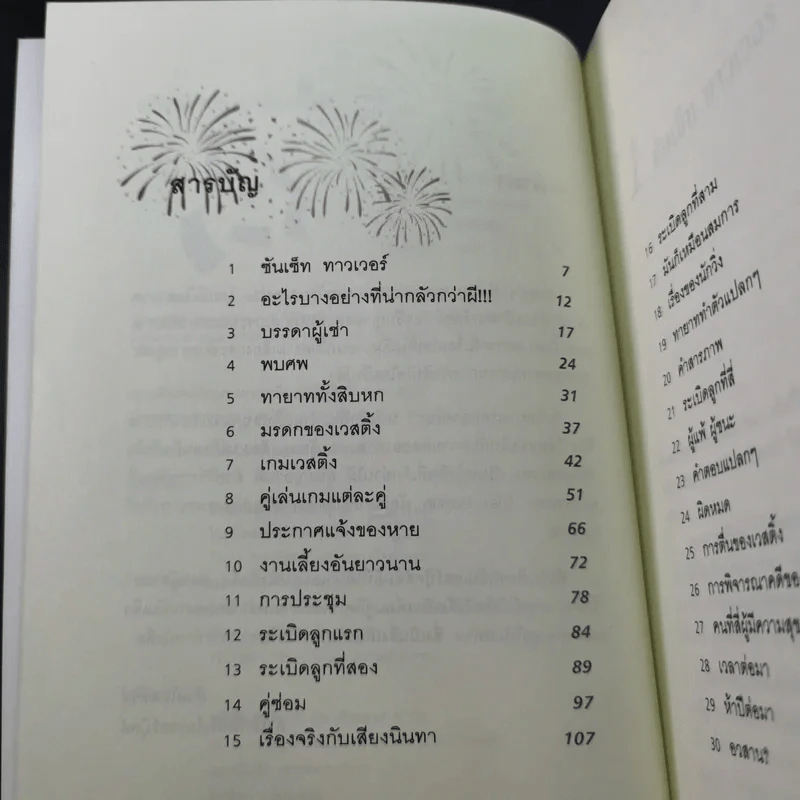 สารบัญ
1 ซันเซ็ท ทาวเวอร์ 7
2 อะไรบางอย่างที่น่ากลัวกว่าผี!!! 12
3 บรรดาผู้เช่า 17
4 พบศพ 24
5 ทายาททั้งสิบหก 31
6 มรดกของเวสติ้ง 37
7 เกมเวสติ้ง 42
8 คู่เล่นเกมแต่ละคู่ 51
9 ประกาศแจ้งของหาย 66
10 งานเลี้ยงอันยาวนาน 72
11 การประชุม 78
12 ระเบิดลูกแรก 84
13 ระเบิดลูกที่สอง 89
14 คู่ซ่อม 97
15 เรื่องจริงกับเสียงนินทา 107
16 ระเบิดลูกที่สาม
17 มันก็เหมือนสมการ
18 เรื่องของนักวิ่ง
19 ทายาททำตัวแปลกๆ
20 คำสารภาพ
21 ระเบิดลูกที่สี่
22 ผู้แพ้ ผู้ชนะ
23 คำตอบแปลกๆ
24 ผิดหมด
25 การตื่นของเวสติ้ง
26 การพิจารณาคดีขอ
27 คนที่สี่ผู้มีความสุข
28 เวลาต่อมา
29 ห้าปีต่อมา
30 อวสาน